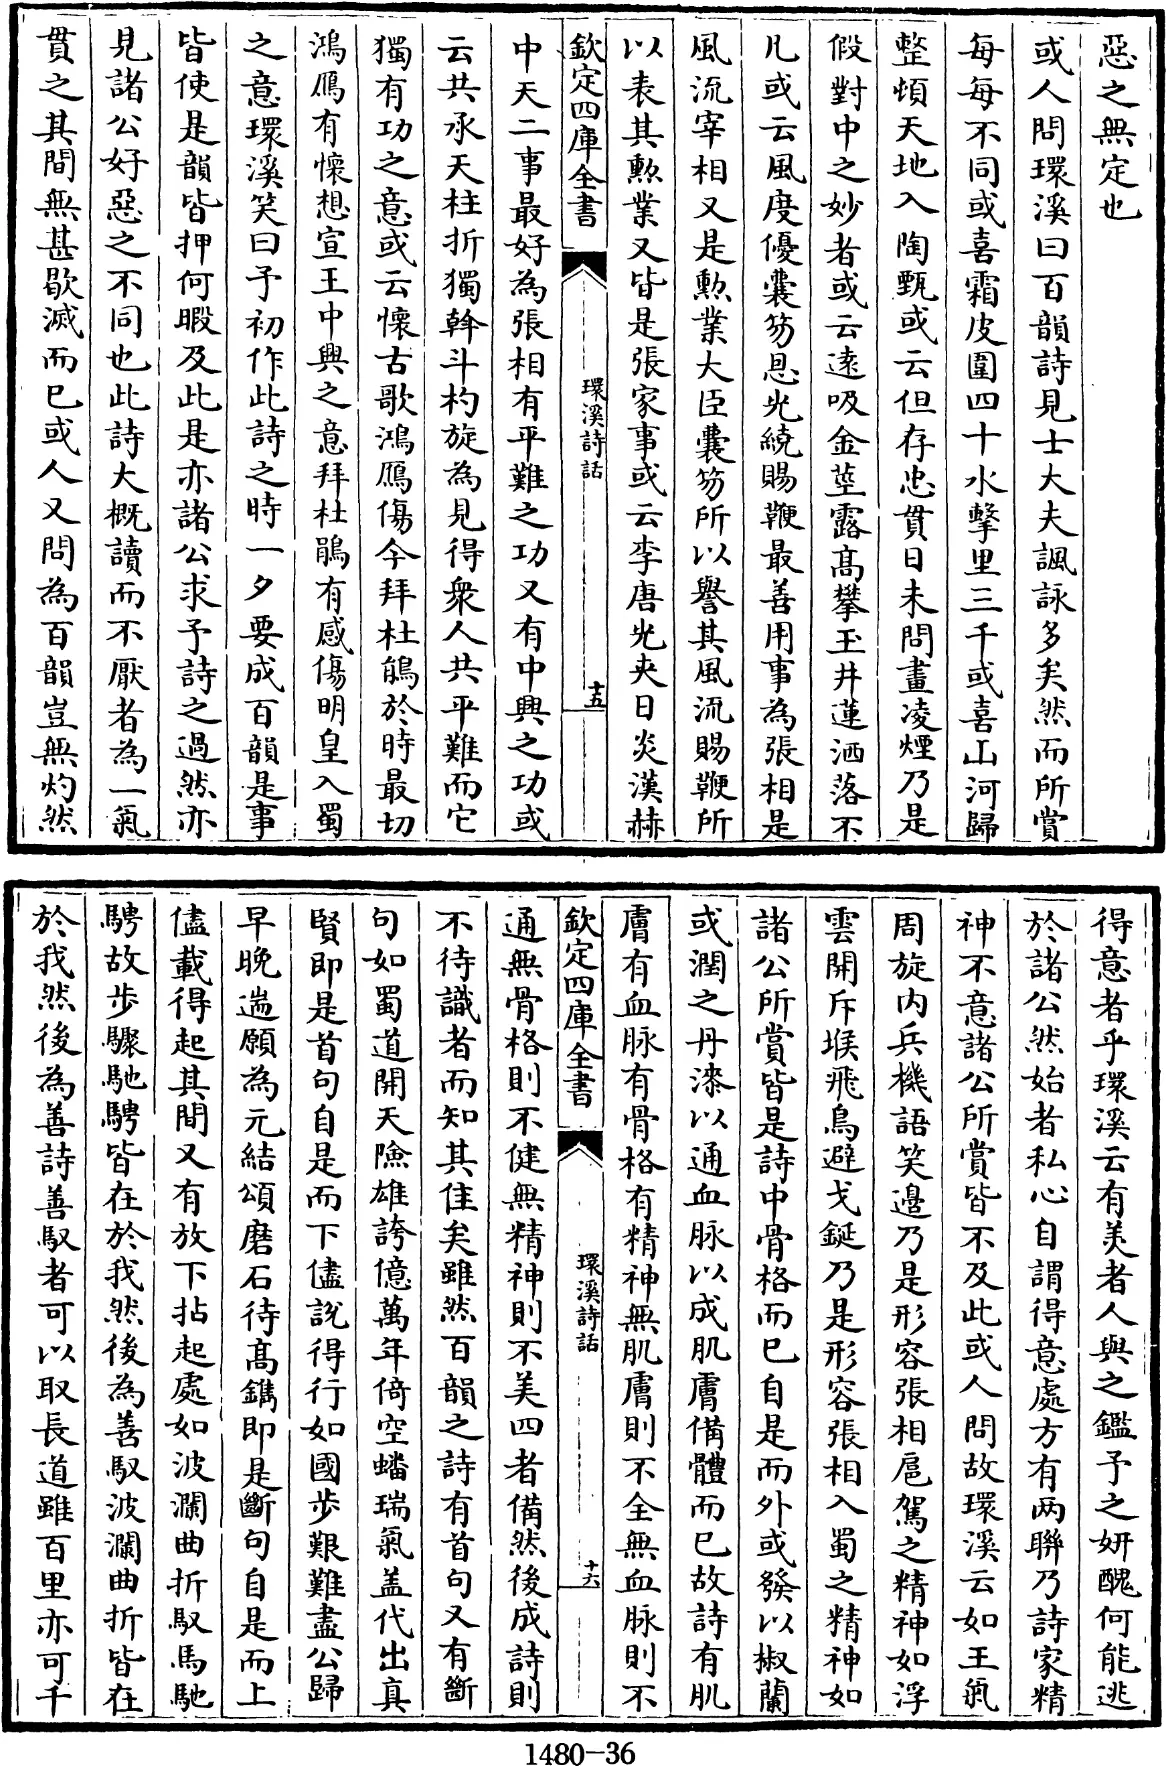 惡之無定也
或人問環溪曰百韻詩見士大夫諷詠多矣然而所賞
每每不同或喜霜皮圍四十水擊里三千或喜山河歸
整頓天地入陶甄或云但存忠貫日未問畫凌煙乃是
假對中之妙者或云遠吸金莖露高攀玉井蓮洒落不
凡或云風度優囊笏恩光繞賜鞭最善用事為張相是
風流宰相又是勲業大臣囊笏所以譽其風流賜鞭所
以表其勲業又皆是張家事或云李唐光夾日炎漢赫
欽定四庫全書
環溪詩話
十五
中天二事最好為張相有平難之功又有中興之功或
云共承天柱折獨斡斗杓旋為見得衆人共平難而它
獨有功之意或云懷古歌鴻鴈傷今拜杜鵑於時最切
鴻鴈有懷想宣王中興之意拜杜鵑有感傷明皇入蜀
之意環溪笑曰予初作此詩之時一夕要成百韻是事
皆使是韻皆押何暇及此是亦諸公求予詩之過然亦
見諸公好惡之不同也此詩大概讀而不厭者為一氣
貫之其間無甚歇滅而已或人又問為百韻豈無灼然
得意者乎環溪云有美者人與之鑑予之妍醜何能逃
於諸公然始者私心自謂得意處方有两聯乃詩家精
神不意諸公所賞皆不及此或人問故環溪云如王氣
周旋内兵機語笑邊乃是形容張相扈駕之精神如浮
雲開斥堠飛鳥避戈鋋乃是形容張相入蜀之精神如
諸公所賞皆是詩中骨格而已自是而外或發以椒蘭
或潤之丹漆以通血脉以成肌膚備體而已故詩有肌
膚有血脉有骨格有精神無肌膚則不全無血脉則不
欽定四庫全書
環溪詩話
十六
通無骨格則不健無精神則不美四者備然後成詩則
不待識者而知其佳矣雖然百韻之詩有首句又有斷
句如蜀道開天險雄誇億萬年倚空蟠瑞氣盖代出真
賢即是首句自是而下儘說得行如國步艱難盡公歸
早晚遄願為元結頌磨石待高鐫即是斷句自是而上
儘載得起其間又有放下拈起處如波瀾曲折馭馬馳
騁故步驟馳騁皆在於我然後為善馭波瀾曲折皆在
於我然後為善詩善馭者可以取長道雖百里亦可千
1480-36